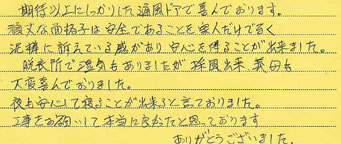 期待以上にしっかりした通風ドアで喜んでおります。
頑丈な面格子は安全であることを家人だけでなく
泥棒に訴えている感があり安心を得ることが出来ました。
脱衣所で湿気もありましたが採風出来 義母も
大変喜んでおりました。
夜も安心して寝ることが出来ると言っておりました。
工事をお願いして本当に良かったと思っております
ありがとうございました。